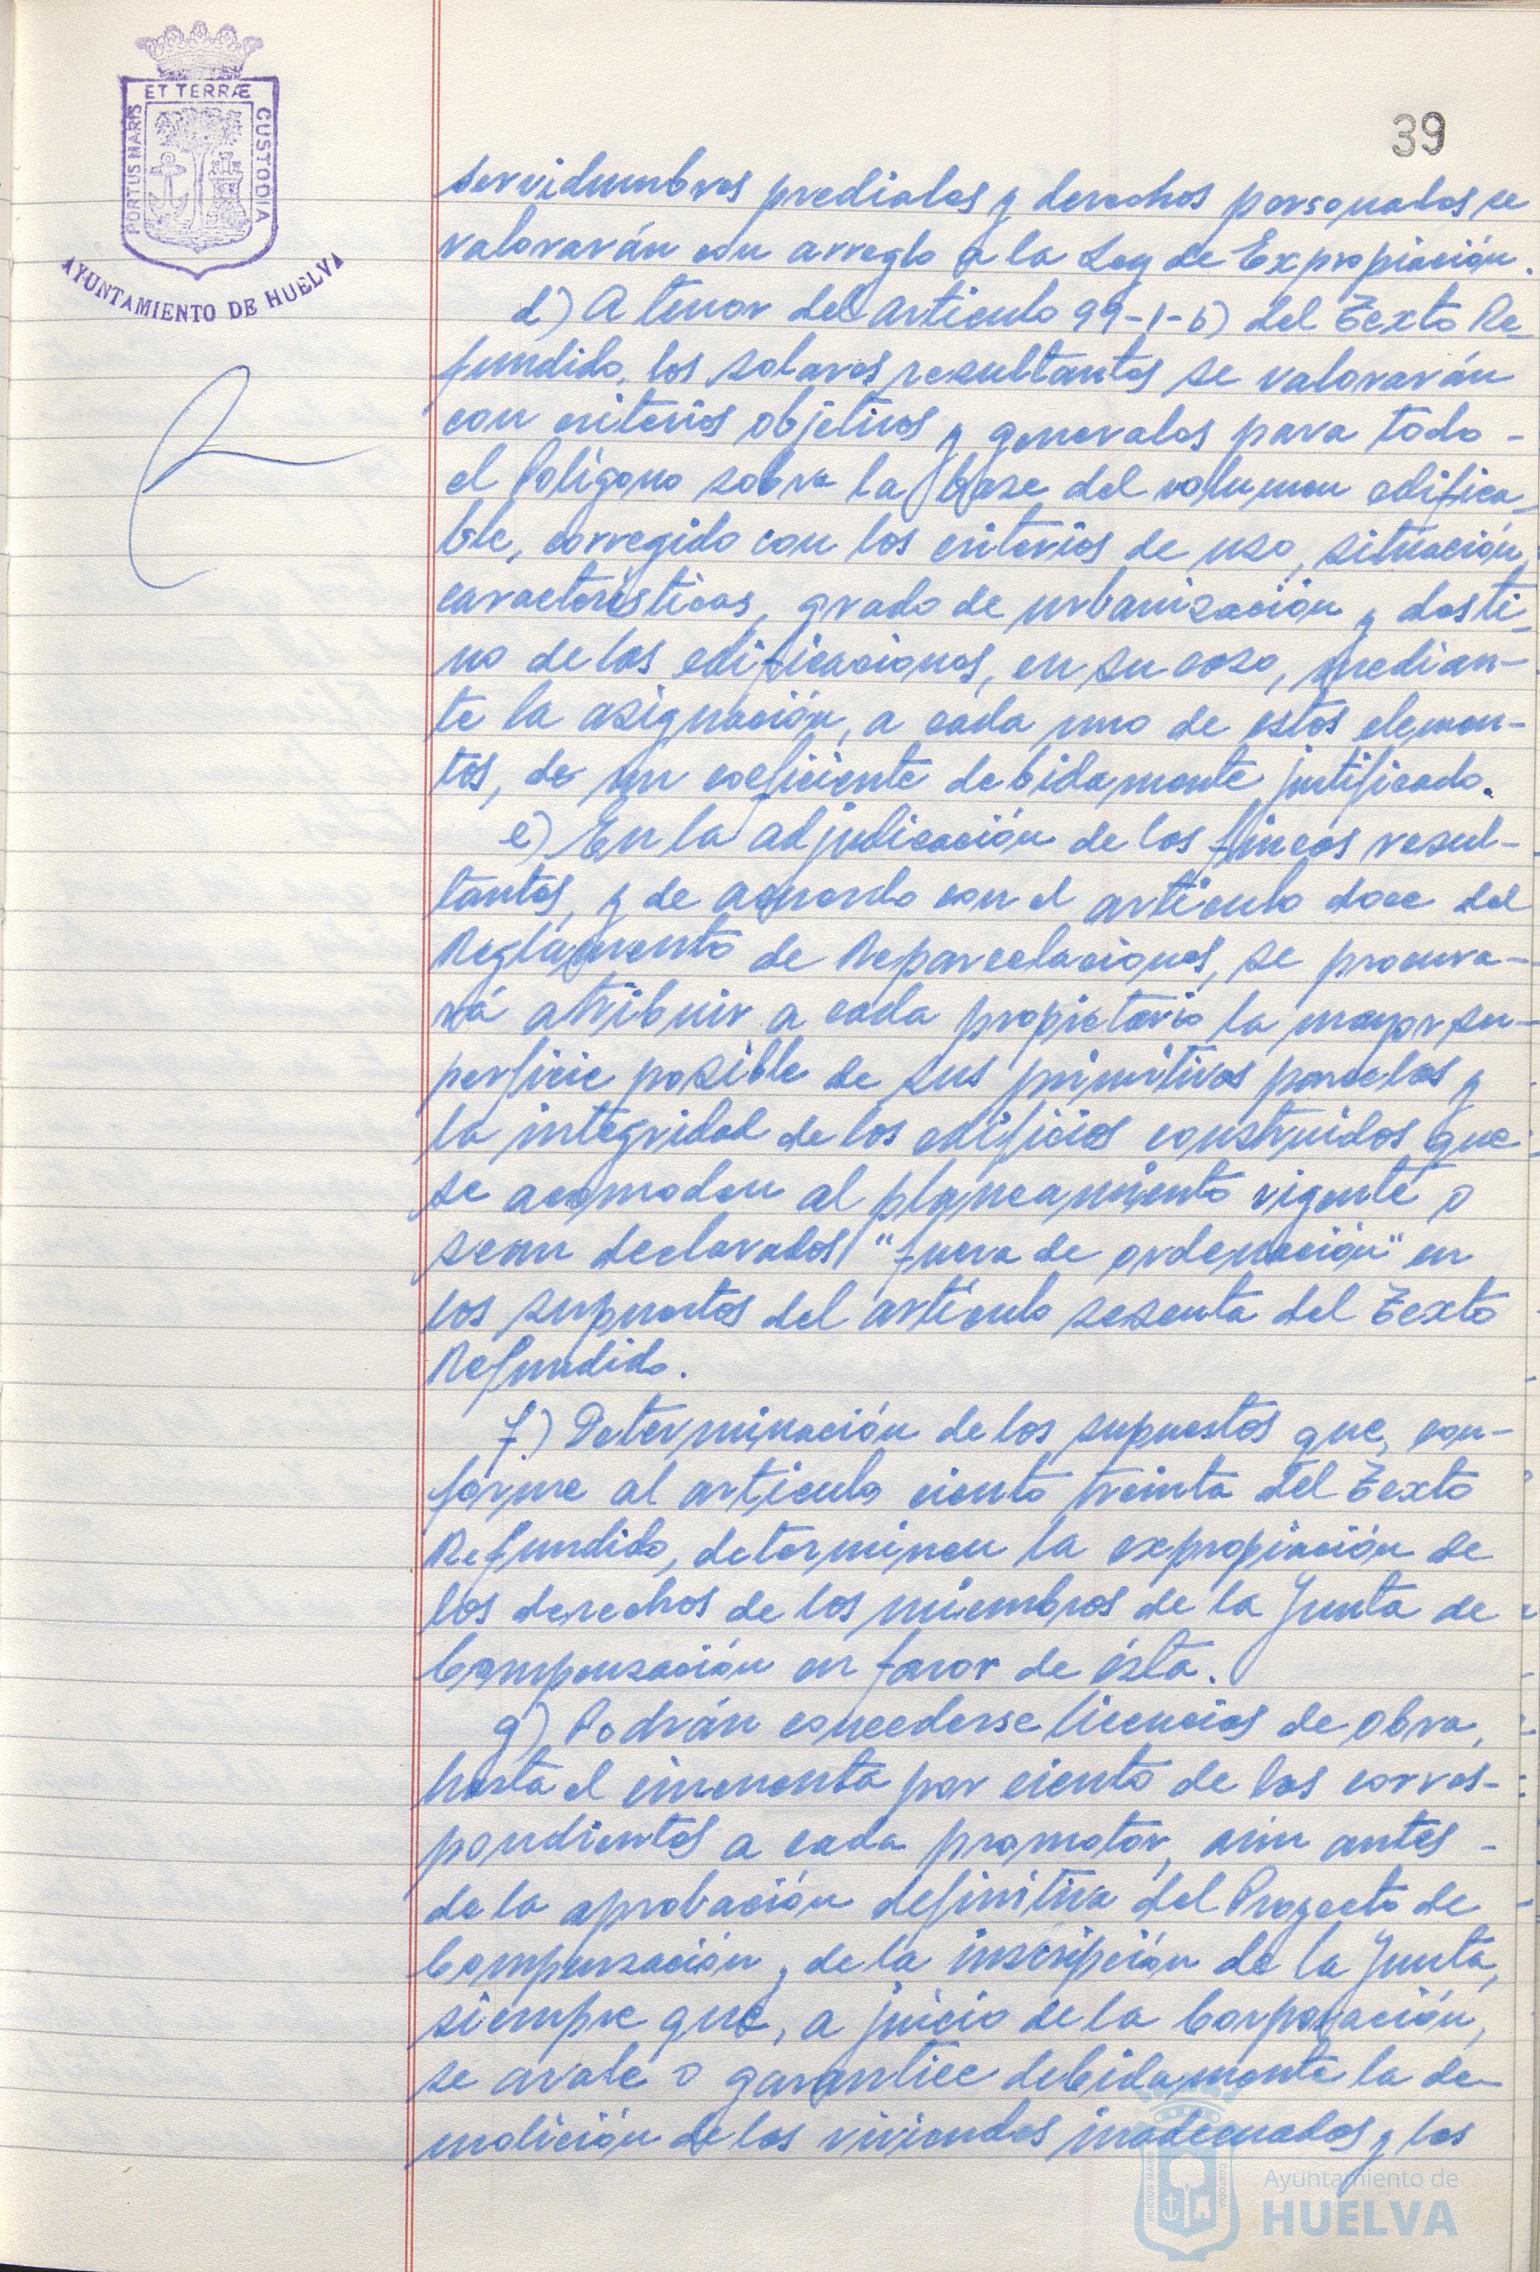 ET TERRÆ
PORTUS MARIS
CUSTODIA
AYUNTAMIENTO DE HUELVA
39
servidumbres prediales y derechos personales se
valorarán con arreglo a la Ley de Expropiación.
d) A tenor del artículo 99-1-b) del Texto Re-
fundido, los solares resultantes se valorarán
con criterios objetivos y generales para todo -
el Polígono sobre la base del volumen edifica-
ble, corregido con los criterios de uso, situación,
características, grado de urbanización y desti-
no de las edificaciones, en su caso, median-
te la asignación, a cada uno de estos elemen-
tos, de un coeficiente debidamente justificado.
e) En la adjudicación de las fincas resul-
tantes, y de acuerdo con el artículo doce del
Reglamento de Reparcelaciones, se procura-
rá atribuir a cada propietario la mayor su-
perficie posible de sus primitivas parcelas y
la integridad de los edificios construidos que
se acomoden al planeamiento vigente o
sean declarados "fuera de ordenación" en
los supuestos del artículo sesenta del Texto
Refundido.
f) Determinación de los supuestos que, con-
forme al artículo ciento treinta del Texto
Refundido, determinen la expropiación de
los derechos de los miembros de la Junta de
Compensación en favor de ésta.
g) Podrán concederse licencias de obra,
hasta el cincuenta por ciento de las corres-
pondientes a cada promotor, aún antes -
de la aprobación definitiva del Proyecto de
Compensación y de la inscripción de la Junta,
siempre que, a juicio de la Corporación,
se avale o garantice debidamente la de-
molición de las viviendas inadecuadas y las
PORTUS MARIS
CUSTODIA
Ayuntamiento de
HUELVA